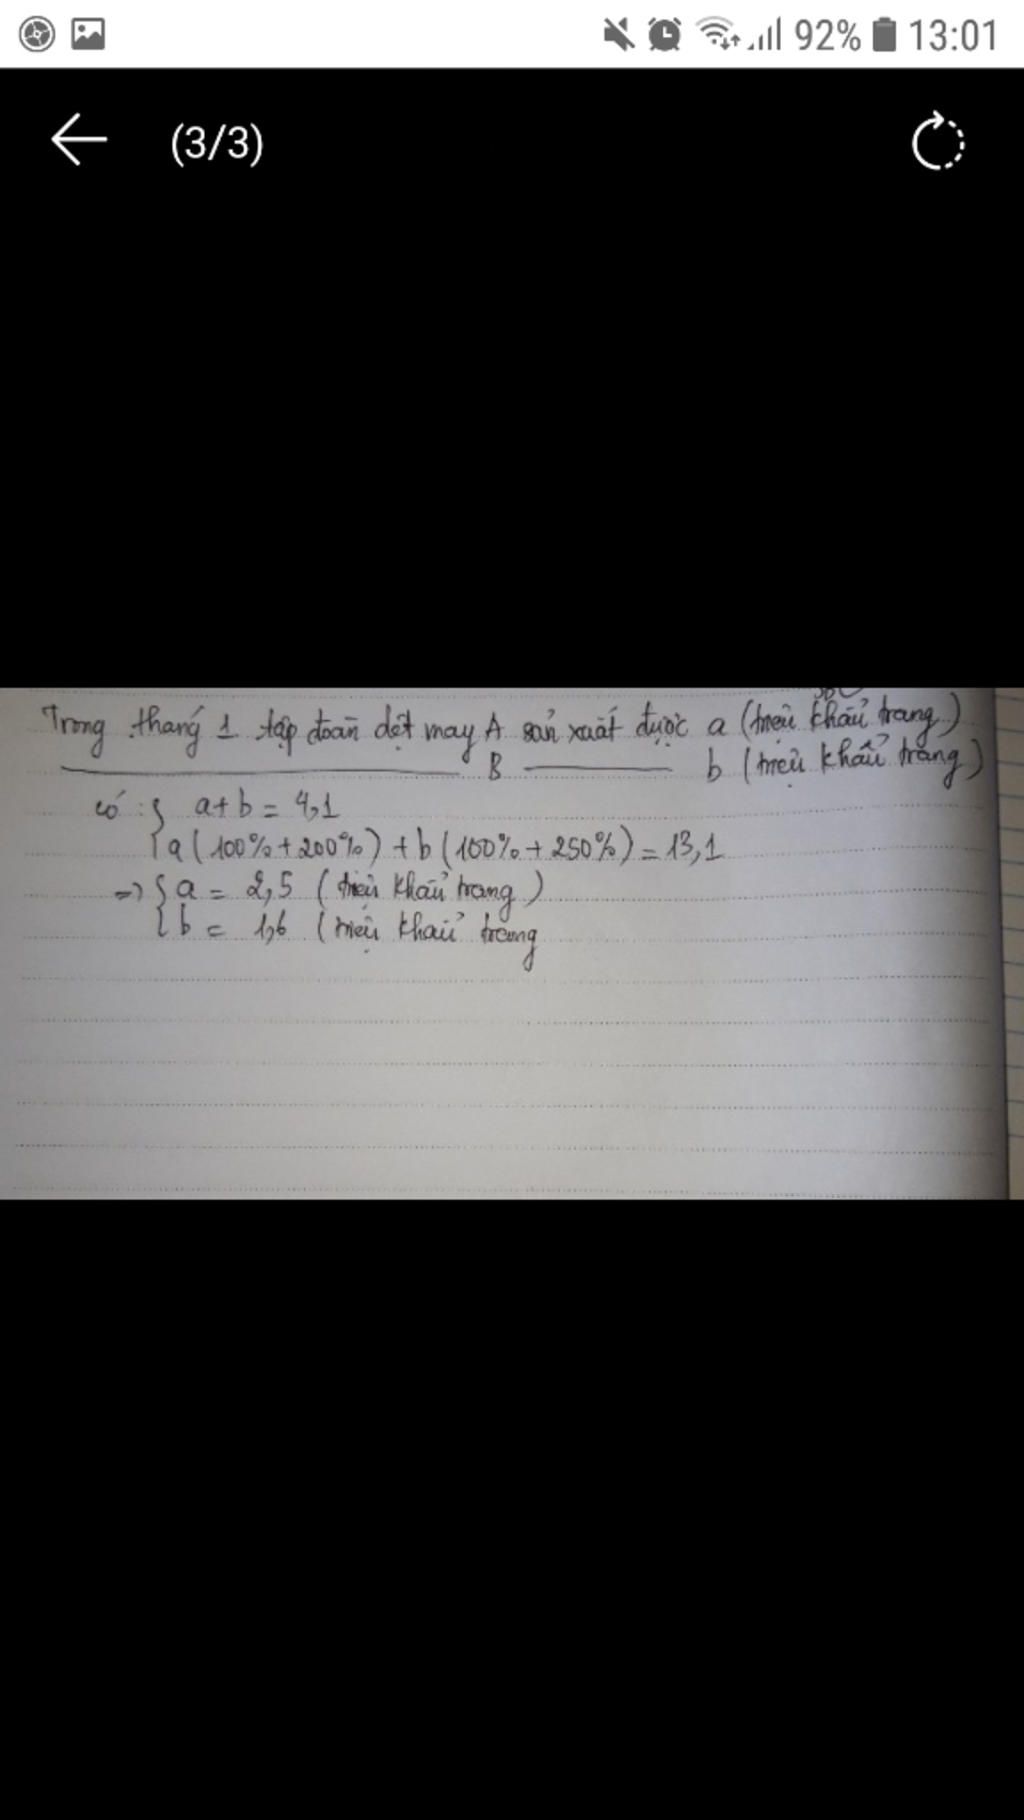 92% 13:01
(3/3)
Trong tháng 1 tập đoàn dệt may A sản xuất được a (triệu khẩu trang)
B b (triệu khẩu trang)
có: { a + b = 4,1
a (100% + 200%) + b (100% + 250%) = 13,1
=> { a = 2,5 (triệu khẩu trang)
b = 1,6 (triệu khẩu trang